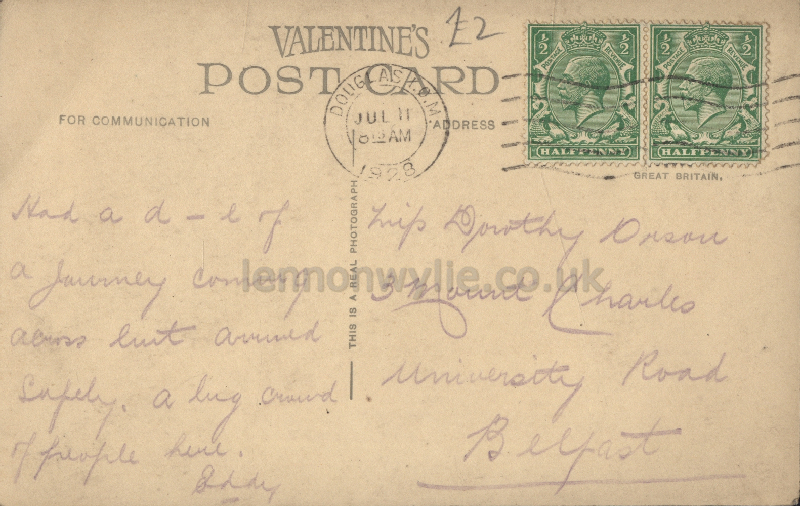 VALENTINE'S
£2
POST CARD
DOUGLAS I.O.M.
JUL 11
8 15 AM
1928
½ ½
HALFPENNY
½ ½
HALFPENNY
FOR COMMUNICATION
ADDRESS
GREAT BRITAIN.
THIS IS A REAL PHOTOGRAPH
Had a d – l of
a Journey coming
across but arrived
Safely. a big crowd
of people here.
Eddy
Miss Dorothy Orson
3 Mount Charles
University Road
Belfast
lennonwylie.co.uk